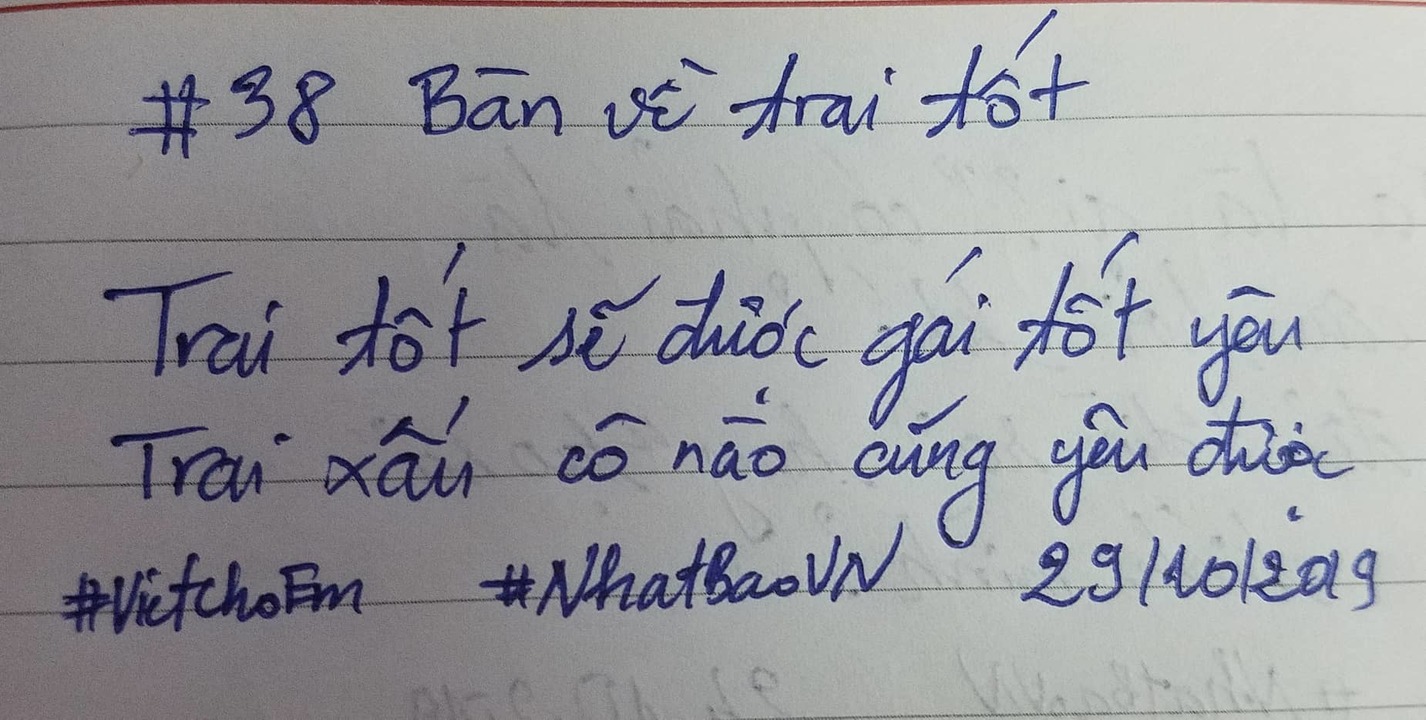 #38 Bàn về trai tốt
Trai tốt sẽ được gái tốt yêu
Trai xấu cô nào cũng yêu được
#VietchoEm #NhatBaoVN 29/10/2019